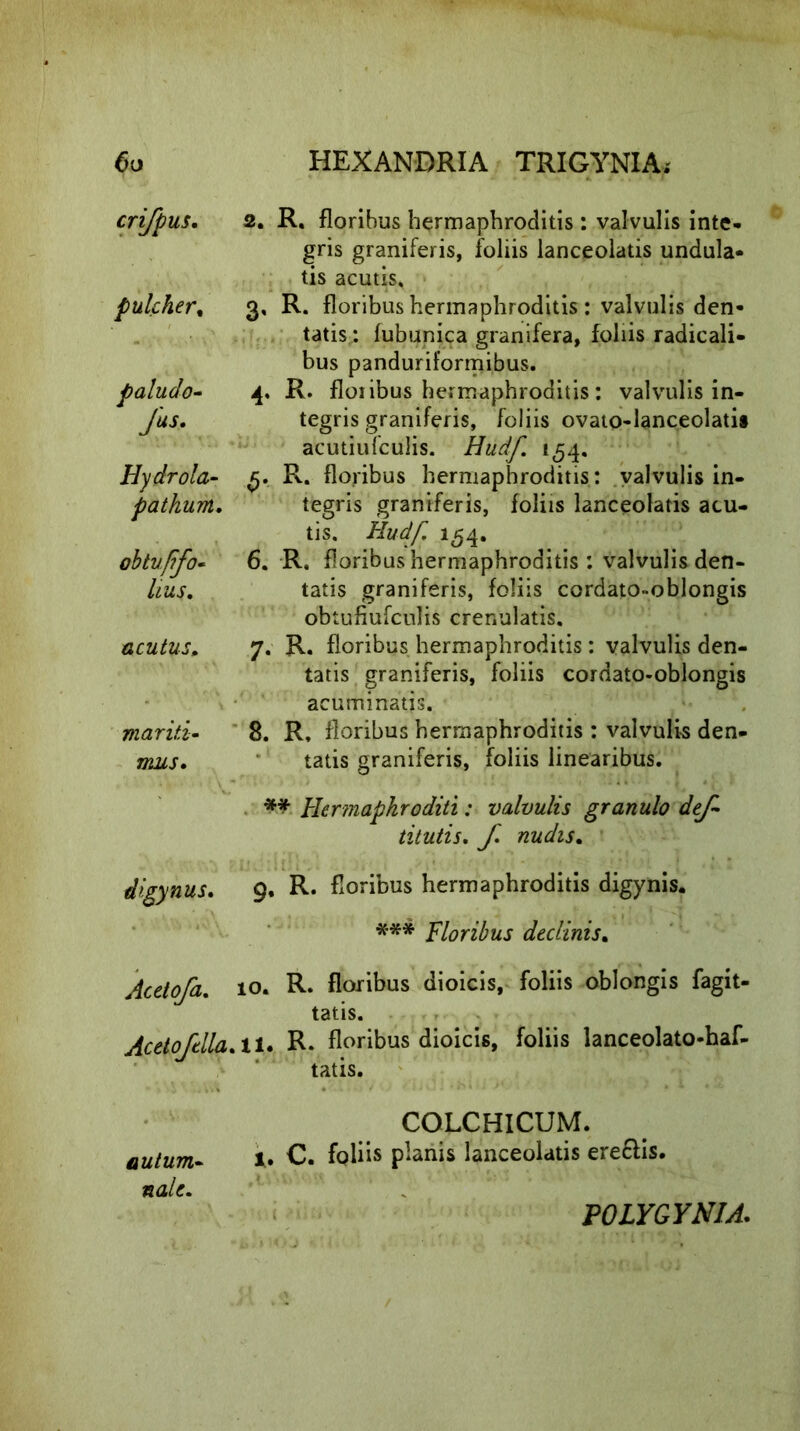 60 HEXANDRIA TRIGYNIA.
criſpus. 2. R. floribus hermaphroditis: valvulis inte-
gris graniferis, foliis lanceolatis undula-
tis acutis.
pulcher. 3. R. floribus hermaphroditis: valvulis den-
tatis: ſubunica granifera, foliis radicali-
bus panduriformibus.
paludo- 4. R. floribus hermaphroditis: valvulis in-
ſus. tegris graniferis, foliis ovato-lanceolatis
acutiuſculis. Hudſ. 154.
Hydrola- 5. R. floribus hermaphroditis: valvulis in-
pathum. tegris graniferis, foliis lanceolatis acu-
tis. Hudſ. 154.
obtuſifo- 6. R. floribus hermaphroditis: valvulis den-
lius. tatis graniferis, foliis cordato-oblongis
obtuſiuſculis crenulatis.
acutus. 7. R. floribus hermaphroditis: valvulis den-
tatis graniferis, foliis cordato-oblongis
acuminatis.
mariti- 8. R. floribus hermaphroditis: valvulis den-
mus. tatis graniferis, foliis linearibus.
** Hermaphroditi: valvulis granulo deſ-
titutis. ſ. nudis.
digynus. 9. R. floribus hermaphroditis digynis.
*** Floribus declinis.
Acetoſa. 10. R. floribus dioicis, foliis oblongis ſagit-
tatis.
Acetoſella. 11. R. floribus dioicis, foliis lanceolato-haſ-
tatis.
COLCHICUM.
autum- 1. C. foliis planis lanceolatis erectis.
nale.
POLYGYNIA.